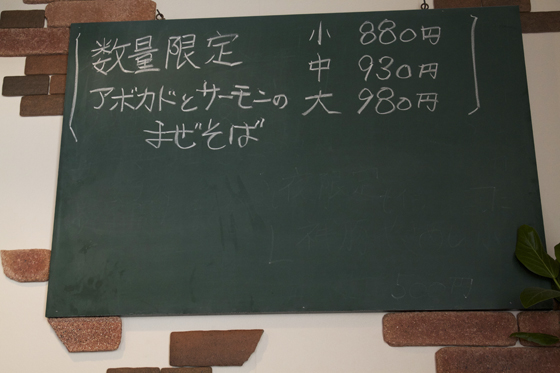 数量限定 小 880円
中 930円
アボカドとサーモンの 大 980円
まぜそば